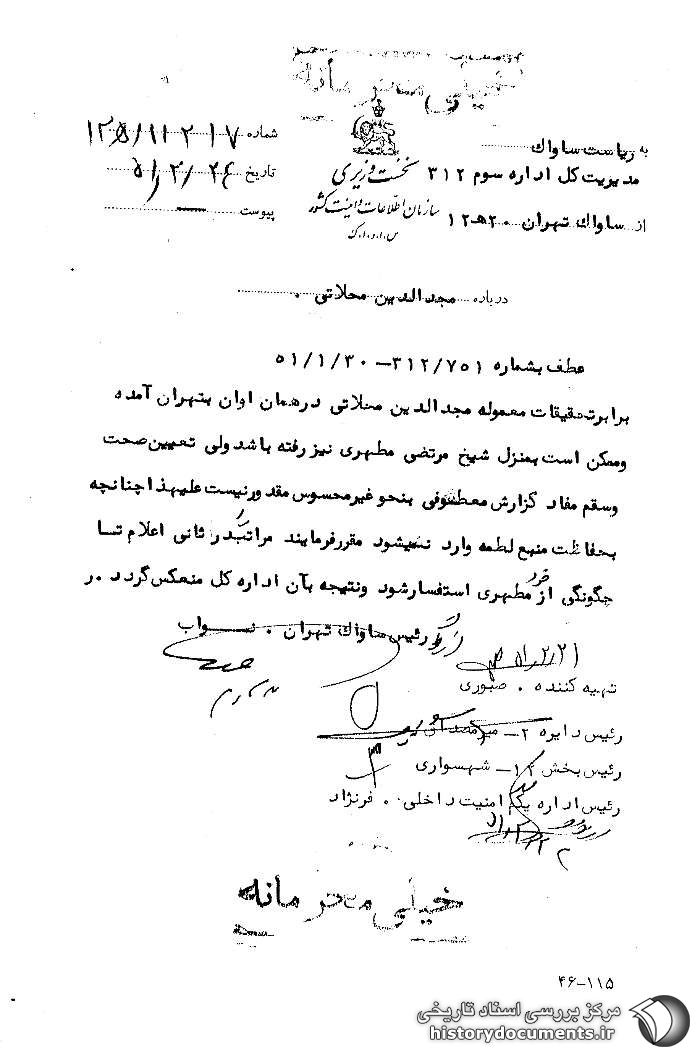 خیلی محرمانه
شماره ۱۲۵/۱۱۲۱۷
به ریاست ساواک
مدیریت کل اداره سوم ۳۱۲
نخست وزیری
تاریخ ۵۱/۲/۲۶
سازمان اطلاعات و امنیت کشور
از ساواک تهران ۲۰ هـ ۱۲
پیوست
س.ا.و.ا.ک
درباره مجدالدین محلاتی .
عطف بشماره ۳۱۲/۷۵۱ – ۵۱/۱/۳۰
برابر تحقیقات معموله مجدالدین محلاتی در همان اوان بتهران آمده
وممکن است بمنزل شیخ مرتضی مطهری نیز رفته باشد ولی تعیین صحت
وسقم مفاد گزارش معطوفی بنحو غیرمحسوس مقدور نیست علیهذا چنانچه
بحفاظت منبع لطمه وارد نمیشود مقررفرمایند مراتب در ثانی اعلام تا
چگونگی از خود مطهری استفسار شود ونتیجه بآن اداره کل منعکس گردد .ر
رئیس ساواک تهران . نواب
تهیه کننده . صبوری
رئیس دایره ۲–
رئیس بخش ۱۲– شهسواری
رئیس اداره یکم امنیت داخلی . فرنژاد
خیلی محرمانه
۴۶-۱۱۵
مرکز بررسی اسناد تاریخی
historydocuments.ir